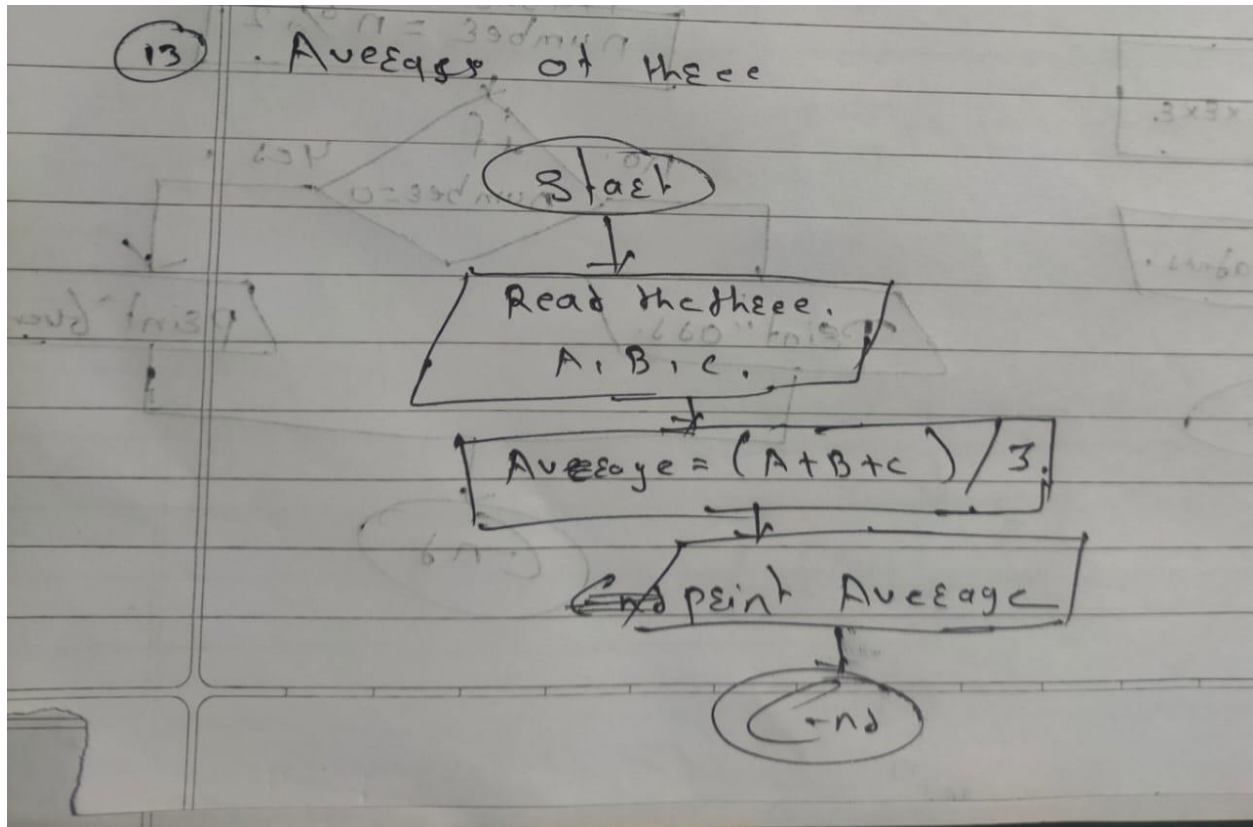 13 . Average of three
Start
Read the three.
A, B, C.
Average = (A+B+C) / 3.
print Average
End